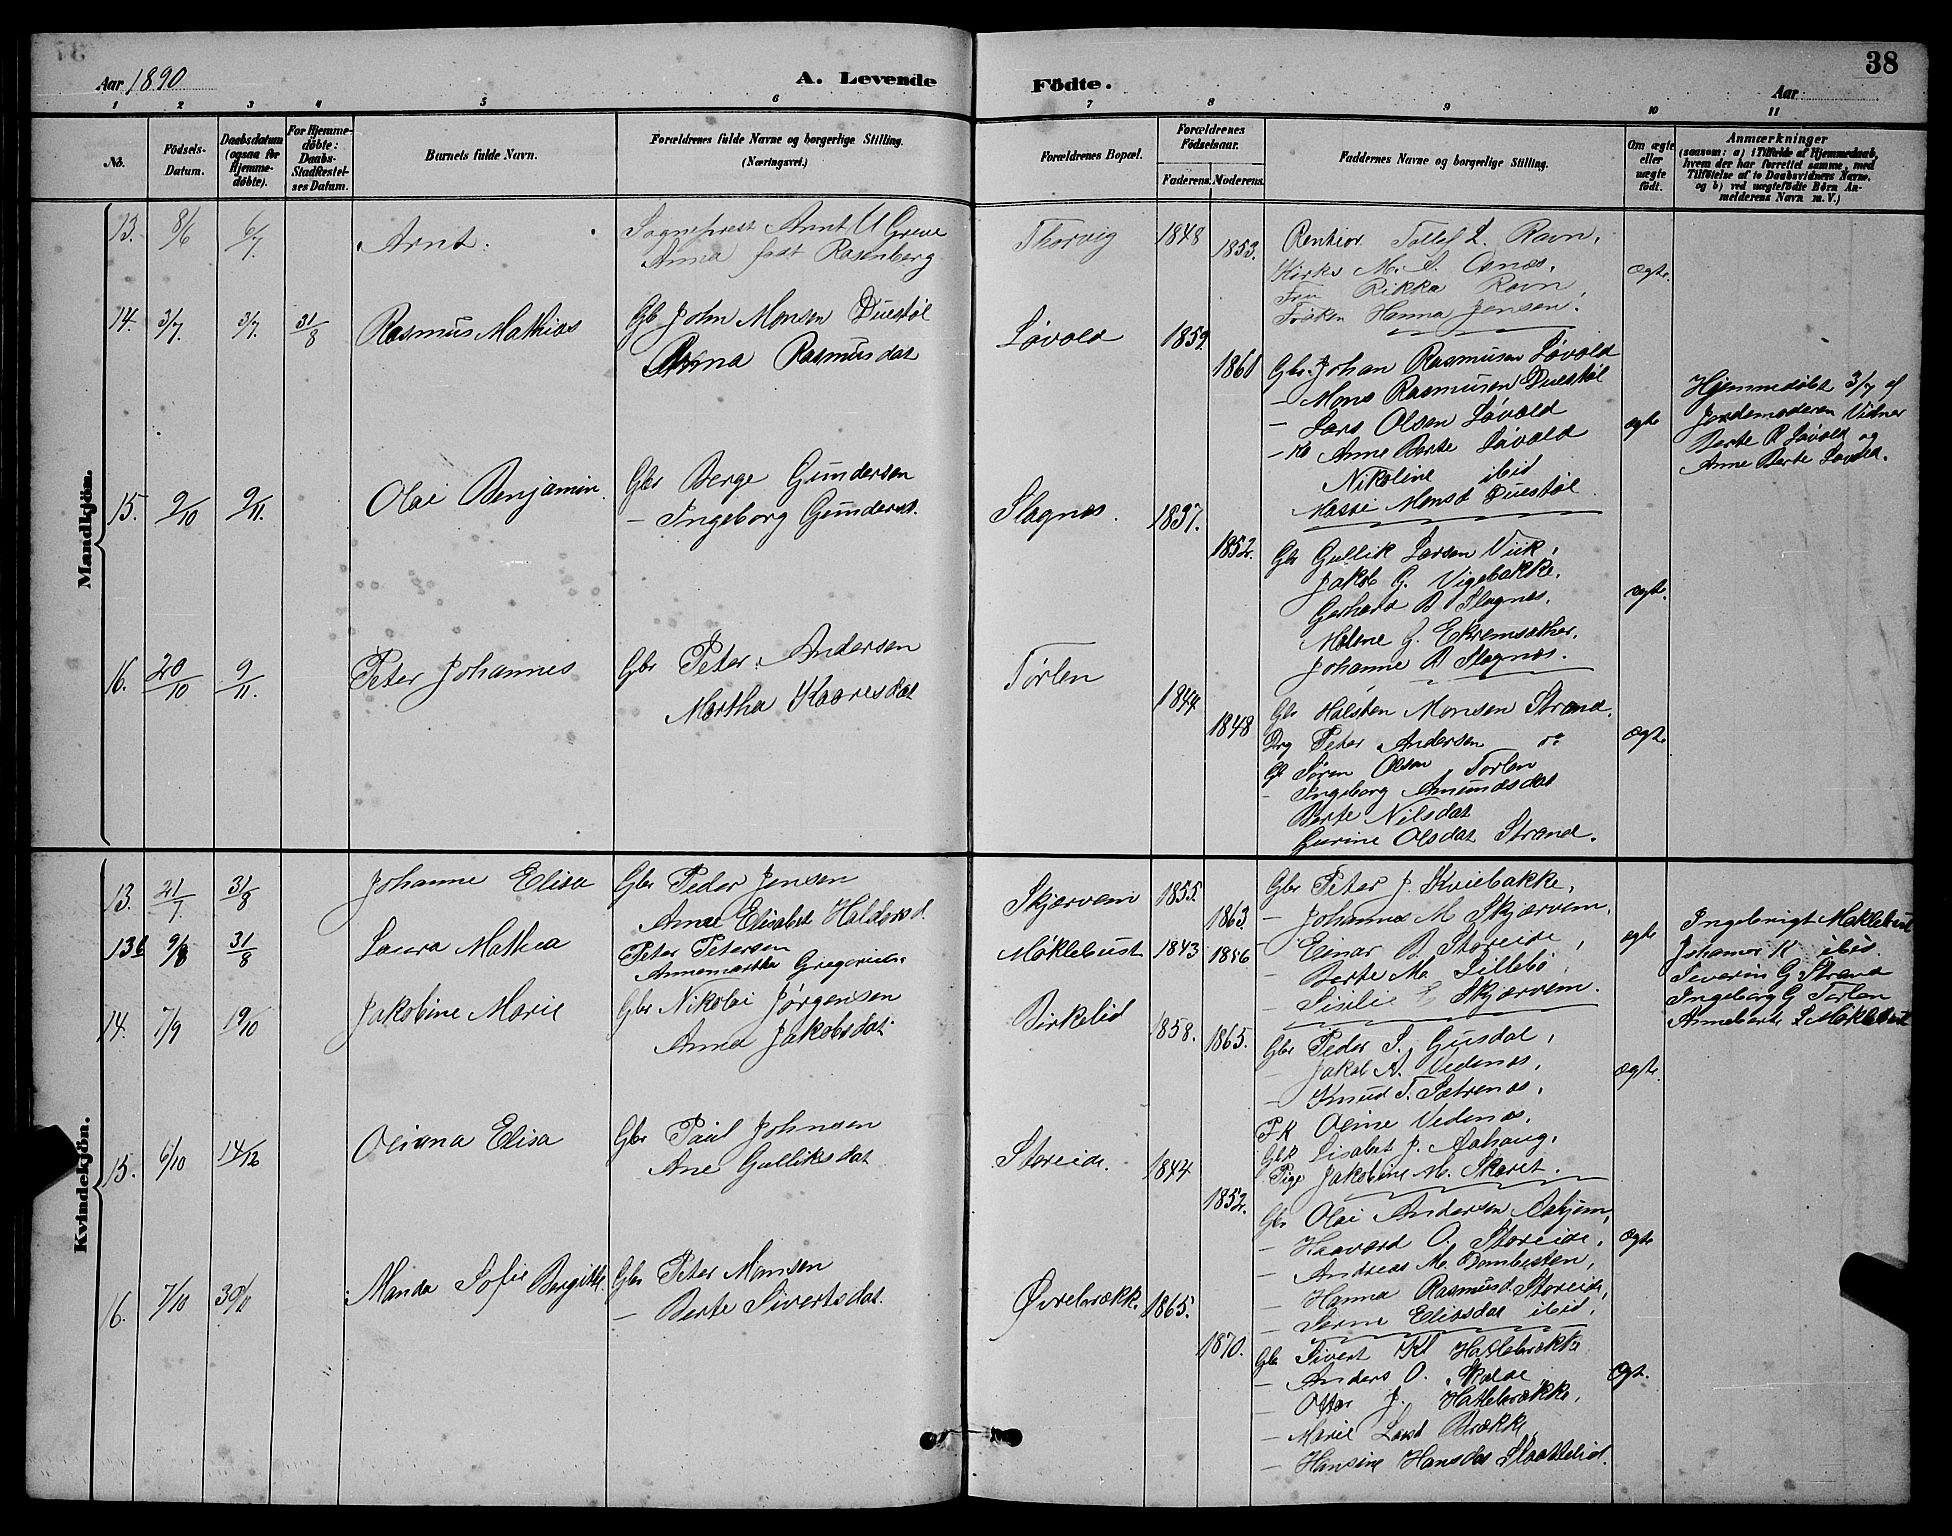 Aar 1890
A. Levende
Födte.
38
Aar
1 2 3 4 5 6 7 8 9 10 11
No.
Födsels-Datum.
Daabsdatum (ogsaa for Hjemmedöbte).
For Hjemmedöbte: Daabs-Stadfestelses Datum.
Barnets fulde Navn.
Forældrenes fulde Navne og borgerlige Stilling. (Næringsvei.)
Forældrenes Bopæl.
Forældrenes Födselsaar.
Faderens. Moderens.
Faddernes Navne og borgerlige Stilling.
Om ægte eller uægte födt.
Anmærkninger
(saasom: a) i Tilfælde af Hjemmedaab, hvem der har forrettet samme, med Tilföielse af to Daabsvidners Navne, og b) ved uægtefödte Börn Anmelderens Navn m. V.)
Mandkjön.
13. 8/6 6/7. Arnt.
Sogneprest Arnt U Greve
Anna født Rosenberg
Thorvig 1848 1853.
Rentier Tollef L. Ravn,
Kirks M. S. Osnæs,
Fru Rikka Ravn,
Frøken Hanna Jensen.
ægte.
14. 3/7. 3/7. 31/8 Rasmus Mathias
Gb John Monsen Duestøl
Anna Rasmusdat
Løvold 1859. 1861
Gbr. Johan Rasmusen Løvold
- Mons Rasmusen Duestøl
- Lars Olsen Løvold
- Ko Anne Berte Løvold
Nikoline ibid
Massi Monsd Duestøl
ægte
Hjemmedøbt 3/7 af
Jordemoderen Vidner
Berte R Løvold og
Anne Berte Løvold.
15. 9/10 9/11. Olai Benjamin.
Gbr Berge Gundersen
- Ingeborg Gunders.
Slagnæs. 1837. 1852.
Gbr Gullik Larsen Viik,
Jakob G. Vigebakke,
Gerhard B Slagnæs,
Malene G. Ekremsæther,
Johanne B Slagnæs.
ægte.
16. 20/10 9/11. Peter Johannes
Gbr Peter Andersen
Martha Kaaresdat
Tørlen 1844 1848
Gbr Halsten Monsen Strand,
Drg Peter Andersen do
Gb Søren Olsen Tørlen
- Ingeborg Amundsdat
Berte Nilsdat
Gurine Olsdat Strand.
ægte
Kvindekjön.
13. 21/7 31/8 Johanne Elisa
Gbr Peder Jensen
Anne Elisabet Haldorsd.
Skjærvem 1855. 1863.
Gbr Peter J. Kviebakke,
- Johannes M Skjærvem,
- Einar B. Storeide,
- Berte M. Lillebø,
- Sisilie E Skjærvem.
ægte
13b 9/8 31/8 Laura Mathea
Peter Petersen
Annemartha Gregorisd.
Møklebust 1843 1846
Ingebrigt Møklebust
Johannes K ibid.
Severin G Strand
Ingeborg G Tørlen
Anneberte L Møklebust
14. 7/9 19/10 Jakobine Marie
Gbr Nikolai Jørgensen
Anna Jakobsdat.
Birkelid 1858. 1865.
Gbr Peder S. Gusdal,
- Jakob A. Vedenæs,
- Knud T. Sætrenæs,
PK Oline Vedenæs,
Gbk Lisabet J. Aahaug,
Pige Jakobine M. Skaret.
ægte.
15. 6/10 14/12 Oliana Elisa
Gbr Paul Johnsen
Ane Gulliksdat
Storeide. 1844 1852.
Gbr Olai Andersen Aahjem,
- Haavard O. Storeide,
- Andreas M. Dombesten,
- Hanna Rasmusd. Storeide,
- Serine Eliasdat ibid,
ægte
16. 7/10 30/11 Manda Sofie Birgitte
Gbr Peter Monsen
- Berte Sivertsdat.
Øvrebrække. 1865. 1870.
Gbr Sivert Kl Hatlebrække
- Anders O. Skalde
- Otter J. Hatlebrække,
- Marie Larsd Brække
- Hansine Hansdat Slaattelid.
ægt.